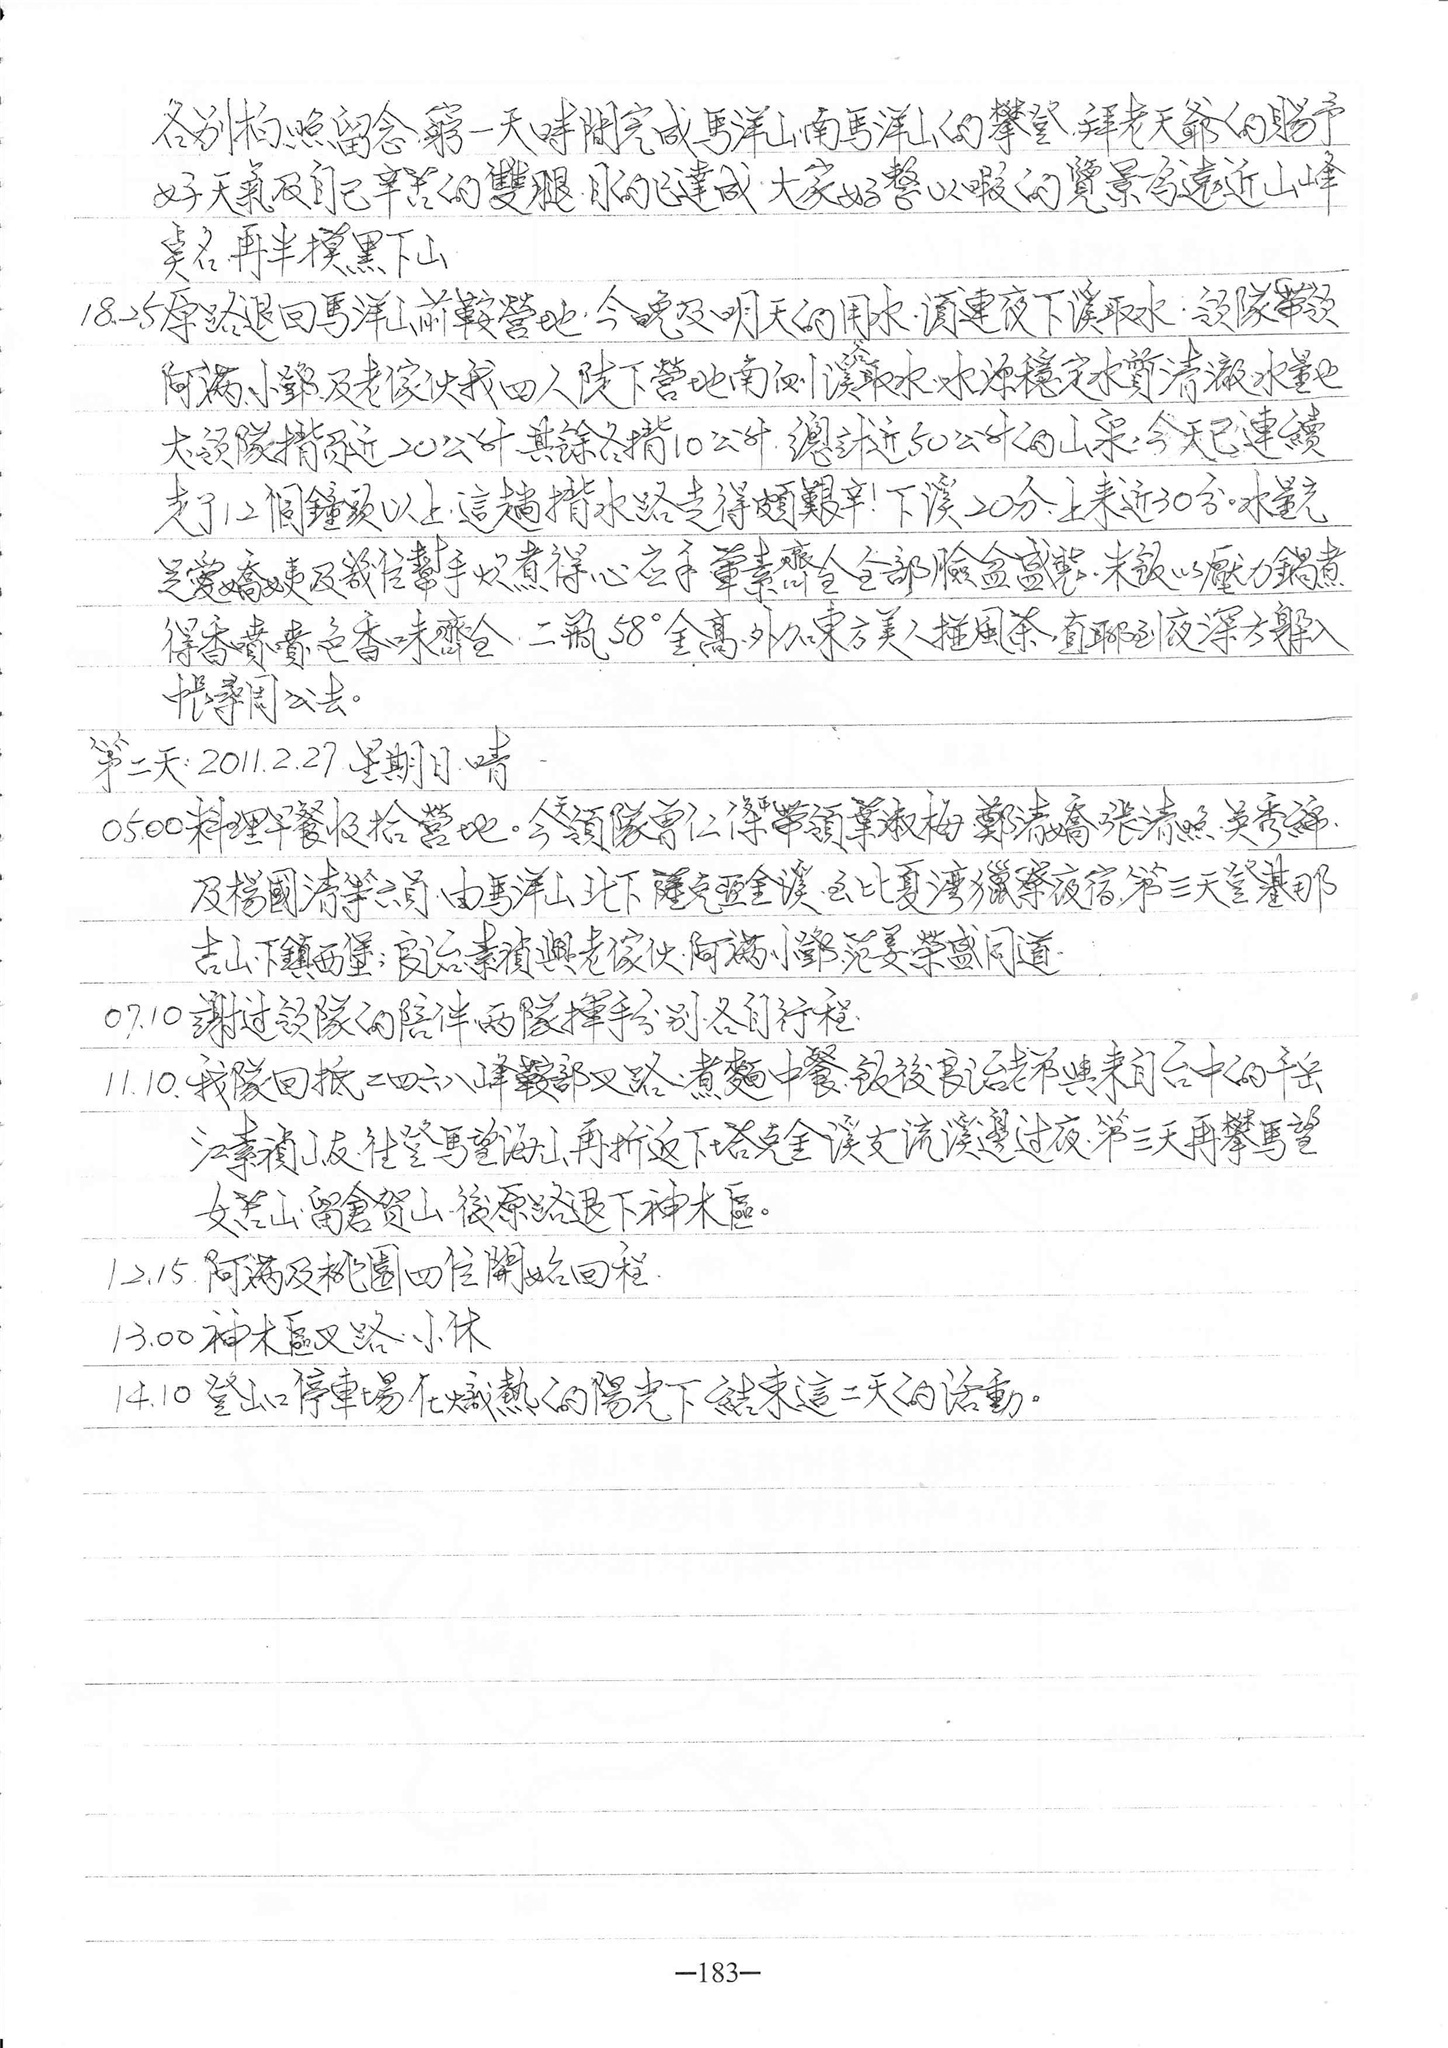 各別拍照留念.窮一天時間完成馬洋山.南馬洋山的攀登.拜老天爺的賜予
好天氣及自己辛苦的雙腿.目的已達成.大家好整以暇的覽景為遠近山峰
點名.再半摸黑下山.
18.25原路退回馬洋山前鞍營地.今晚及明天的用水.須連夜下溪取水.領隊帶領
阿滿.小鄧.及老傢伙我四人陡下營地南側溪谷取水.水源穩定水質清澈水量也
大.領隊揹了近20公升其餘各揹10公升.總計近50公升的山泉.今天已連續
走了12個鐘頭以上.這趟揹水路走得頗艱辛!下溪20分.上來近30分。水量充
足愛嬌姨及幾位幫手炊煮得心应手葷素齊全全部臉盆盛裝.米飯以壓力鍋煮
得香噴噴.色香味齊全.二瓶58°金高.外加東方美人椪風茶.直聊到夜深方躲入
帳尋周公去。
第二天:2011.2.27.星期日.晴
05.00料理早餐收拾營地。今天領隊曾仁傑帶領葉淑梅.鄭清嬌.張清照.吳秀綿.
及楊國清等六員.由馬洋山北下薩克亞金溪.至比夏灣獵寮夜宿.第三天登基那
吉山.下鎮西堡;良治.素禎與老傢伙.阿滿.小鄧.范姜.榮盛同道.
07.10謝过領隊的陪伴.兩隊揮手分別.各自行程.
11.10.我隊回抵二四六八峰鞍部叉路.煮麵中餐.飯後良治老弟與來自台中的千岳
江素禎山友.往登馬望海山.再折返下塔克金溪支流溪邊过夜.第三天再攀馬望
女苦山.留倉賀山.後原路退下神木區。
12.15.阿滿及桃園四位開始回程.
13.00神木區叉路.小休
14.10登山口停車場在熾熱的陽光下結束這二天的活動。
—183—